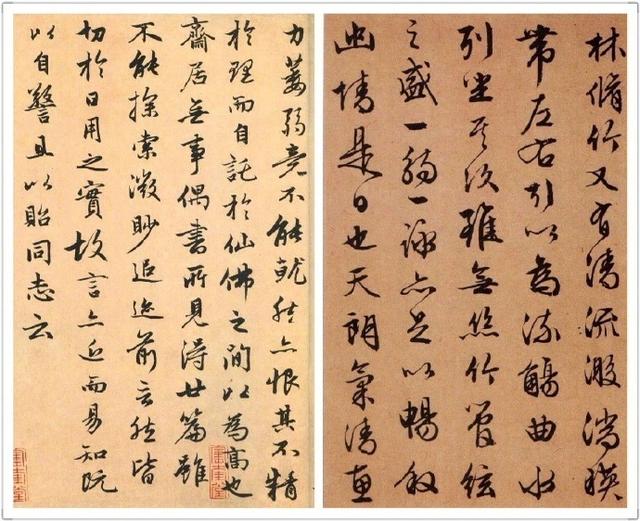 林脩竹又有清流激湍暎
帶左右引以為流觴曲水
列坐其次雖無絲竹管絃
之盛一觴一詠亦足以暢敘
幽情是日也天朗氣清惠
力萎弱竟不能就然亦恨其不精
於理而自託於仙佛之間以為高也
齋居無事偶書所見得廿篇雖
不能探索微眇追迹前言然皆
切於日用之實故言亦近而易知既
以自警且以貽同志云